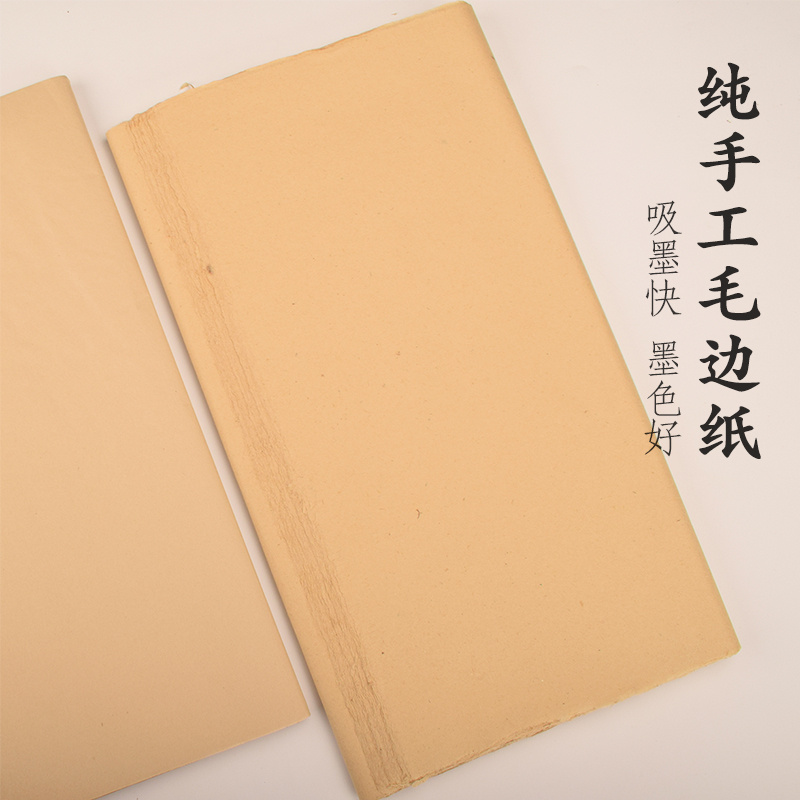 纯手工毛边纸
吸墨快 墨色好